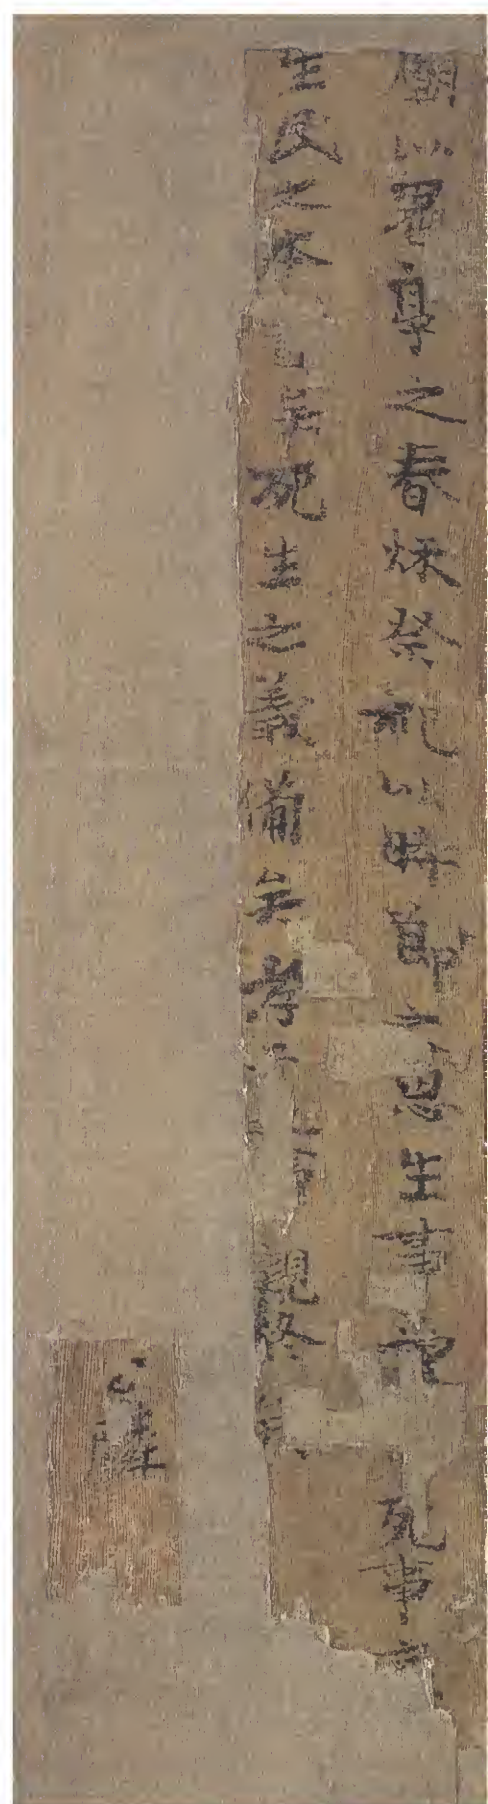 廟以鬼享之春秋祭祀以時思生事愛死事哀
生民之本盡矣死生之義備矣孝子親終矣